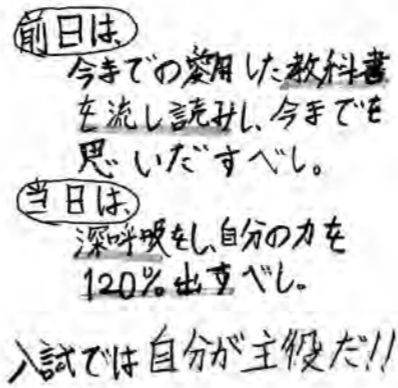 前日は、
今までの愛用した教科書
を流し読みし、今までを
思いだすべし。
当日は、
深呼吸をし、自分の力を
120%出すべし。
入試では自分が主役だ!!